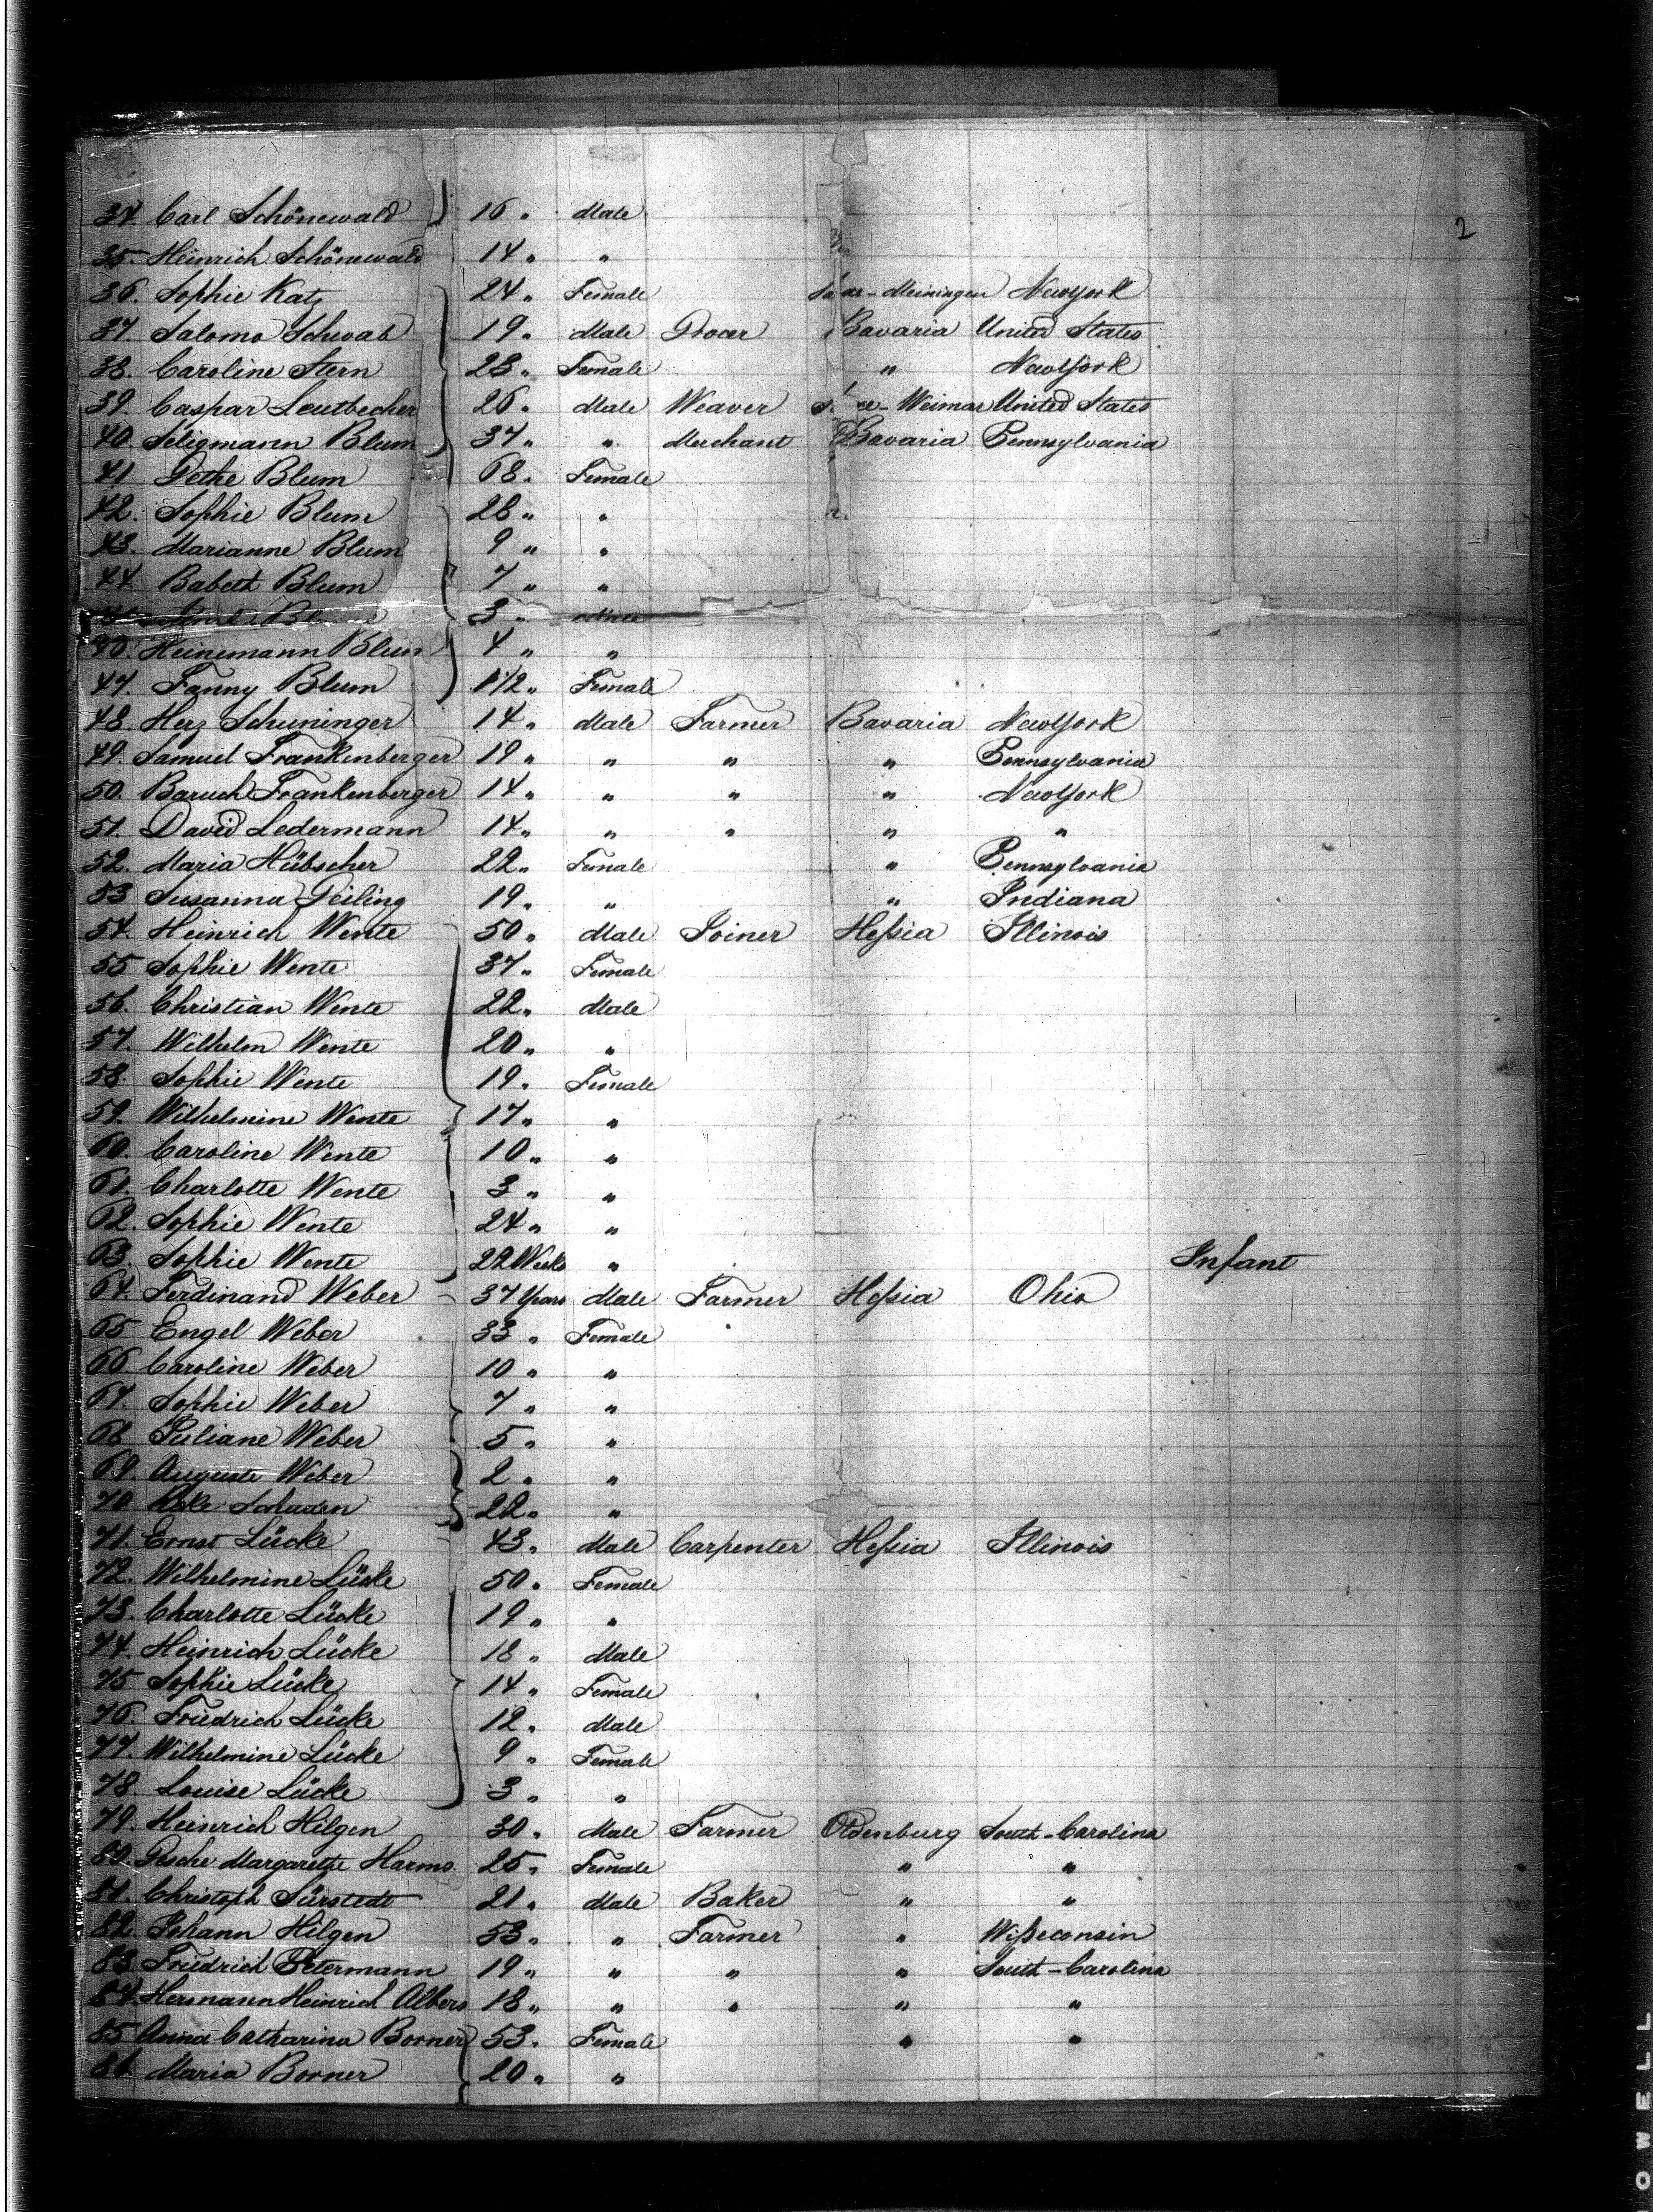 2
34. Carl Schönewald 16 " Male
35. Heinrich Schönewald 14 " "
36. Sophie Katz 24 " Female Saxe-Meiningen NewYork
37. Salomo Schwab 19 " Male Grocer Bavaria United States
38. Caroline Stern 23 " Female " NewYork
39. Caspar Leutbecher 26 " Male Weaver Weimar United States
40. Seligmann Blum 37 " " Merchant Bavaria Pennsylvania
41 Gethe Blum 68 " Female
42. Sophie Blum 28 " "
43. Marianne Blum 9 " "
44. Babeth Blum 7 " "
3 " Male
46. Heinemann Blum 4 " "
47. Fanny Blum 1 1/2 " Female
48. Herz Schuninger 14 " Male Farmer Bavaria NewYork
49. Samuel Frankenberger 19 " " " " Pennsylvania
50. Baruch Frankenberger 14 " " " " NewYork
51. David Ledermann 14 " " " " "
52. Maria Hübscher 22 " Female " Pennsylvania
53 Susanna Geiling 19 " " " Indiana
54. Heinrich Wente 50 " Male Joiner Heſsia Illinois
55 Sophie Wente 37 " Female
56. Christian Wente 22 " Male
57. Wilhelm Wente 20 " "
58. Sophie Wente 19 " Female
59. Wilhelmine Wente 17 " "
60. Caroline Wente 10 " "
61. Charlotte Wente 3 " "
62. Sophie Wente 24 " "
63. Sophie Wente 22 Weeks " Infant
64. Ferdinand Weber 37 Years Male Farmer Heſsia Ohio
65 Engel Weber 33 " Female
66 Caroline Weber 10 " "
67. Sophie Weber 7 " "
68 Juliane Weber 5 " "
69. Auguste Weber 2 " "
70 22 " "
71. Ernst Lücke 43 " Male Carpenter Heſsia Illinois
72. Wilhelmine Lücke 50 " Female
73. Charlotte Lücke 19 " "
74. Heinrich Lücke 18 " Male
75 Sophie Lücke 14 " Female
76. Friedrich Lücke 12 " Male
77. Wilhelmine Lücke 9 " Female
78. Louise Lücke 3 " "
79. Heinrich Hilgen 30 " Male Farmer Oldenburg South-Carolina
80. Gesche Margarethe Harms 25 " Female " "
81. Christoph Sürstedt 21 " Male Baker " "
82. Johann Hilgen 53 " " Farmer " Wiſseconsin
83. Friedrich Petermann 19 " " " " South-Carolina
84. Hermann Heinrich Albers 18 " " " " "
85 Anna Catharina Borner 53 " Female " "
86. Maria Borner 20 " "
OWELL